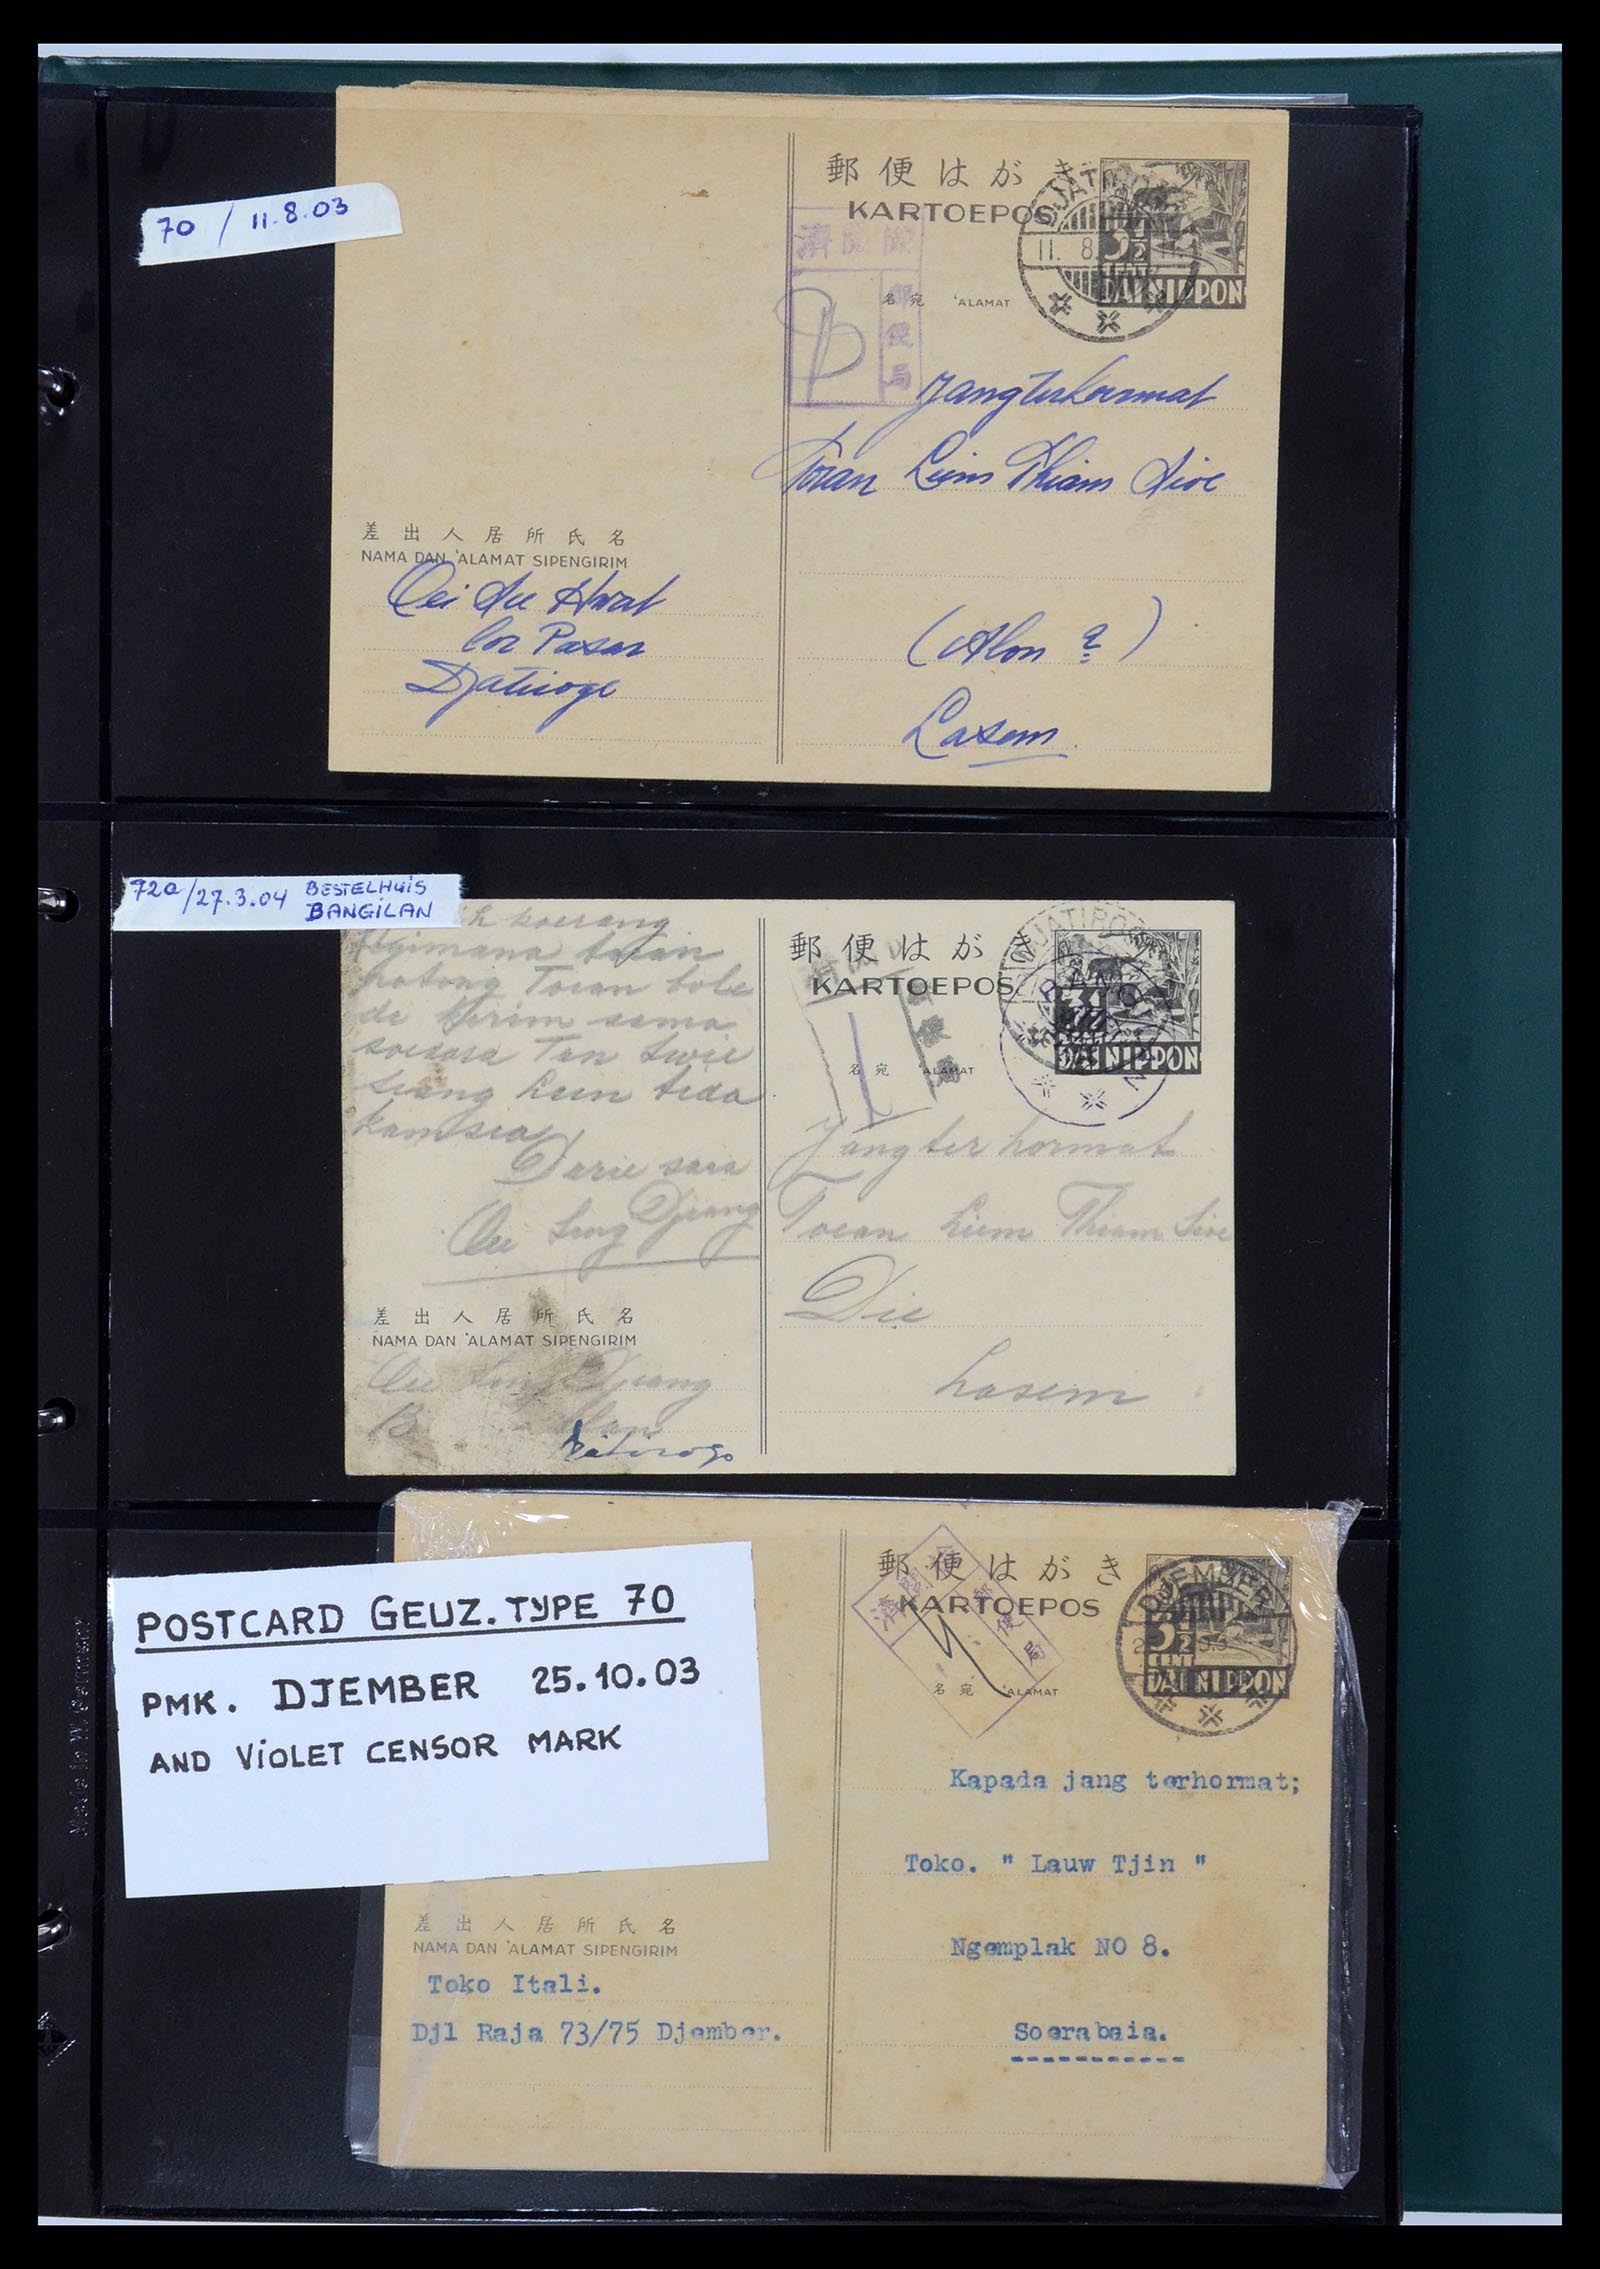 70 / 11.8.03
郵便はがき
KARTOEPOS
DJATI
11. 8.
3½
CENT
DAI NIPPON
濟閲檢
郵便局
名宛 'ALAMAT
Jang terhormat
Toean Liem Thiam Sioe
(Alon 2)
Lasem.
差出人居所氏名
NAMA DAN 'ALAMAT SIPENGIRIM
Oei
lor Pasar
Djatirogo
72a/27.3.04 BESTELHUIS
BANGILAN
koerang
Bgimana toean
potong Toean bole
de kirim sama
soedara Tan Swie
Siang Lien tida
kamsia
Darie saia
Djiang
郵便はがき
KARTOEPOS
DJATIRO
BANG
N
3½
DAI NIPPON
便
名宛 'ALAMAT
Jang ter hormat
Toean Liem Thiam Sioe
Die
Lasem
差出人居所氏名
NAMA DAN 'ALAMAT SIPENGIRIM
Djiang
Djatirogo
POSTCARD GEUZ. TYPE 70
PMK. DJEMBER 25.10.03
AND VIOLET CENSOR MARK
郵便はがき
KARTOEPOS
DJEMBER
3½
CENT
DAI NIPPON
濟閲檢
郵便局
名宛 'ALAMAT
Kapada jang terhormat;
Toko. " Lauw Tjin "
Ngemplak NO 8.
Soerabaia.
差出人居所氏名
NAMA DAN 'ALAMAT SIPENGIRIM
Toko Itali.
Djl Raja 73/75 Djember.
Made in W. Germany